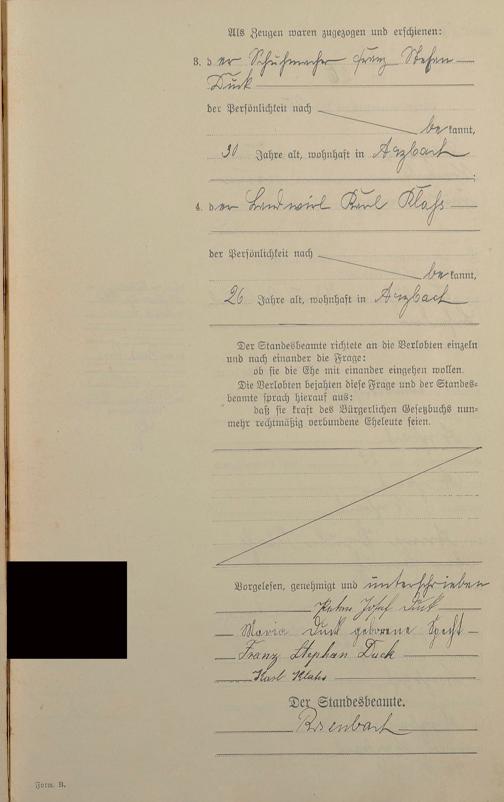 Als Zeugen waren zugezogen und erschienen:
3. der Schuhmacher Franz Stefan
Duck
der Persönlichkeit nach
bekannt,
30 Jahre alt, wohnhaft in Arzbach
4. der Landwirt Karl Klaß
der Persönlichkeit nach
bekannt,
26 Jahre alt, wohnhaft in Arzbach
Der Standesbeamte richtete an die Verlobten einzeln
und nach einander die Frage:
ob sie die Ehe mit einander eingehen wollen.
Die Verlobten bejahten diese Frage und der Standes-
beamte sprach hierauf aus:
daß sie kraft des Bürgerlichen Gesetzbuchs nun-
mehr rechtmäßig verbundene Eheleute seien.
Vorgelesen, genehmigt und unterschrieben
Josef Duck
Maria Duck geborene Specht
Franz Stephan Duck
Karl Klaß
Der Standesbeamte.
Rosenbach
Form. B.